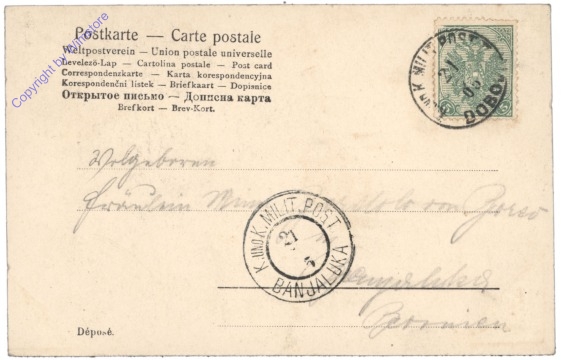 Postkarte — Carte postale
Weltpostverein — Union postale universelle
Levelező-Lap — Cartolina postale — Post card
Correspondenzkarte — Karta korespondencyjna
Korespondenční listek — Briefkaart — Dopisnice
Открытое письмо — Дописна карта
Brefkort — Brev-Kort.
K. MILIT. POST
21
05
DOBO
5
5
Fräulein
von
K. UND K. MILIT. POST
21
5
BANJALUKA
Bosnien
Déposé.